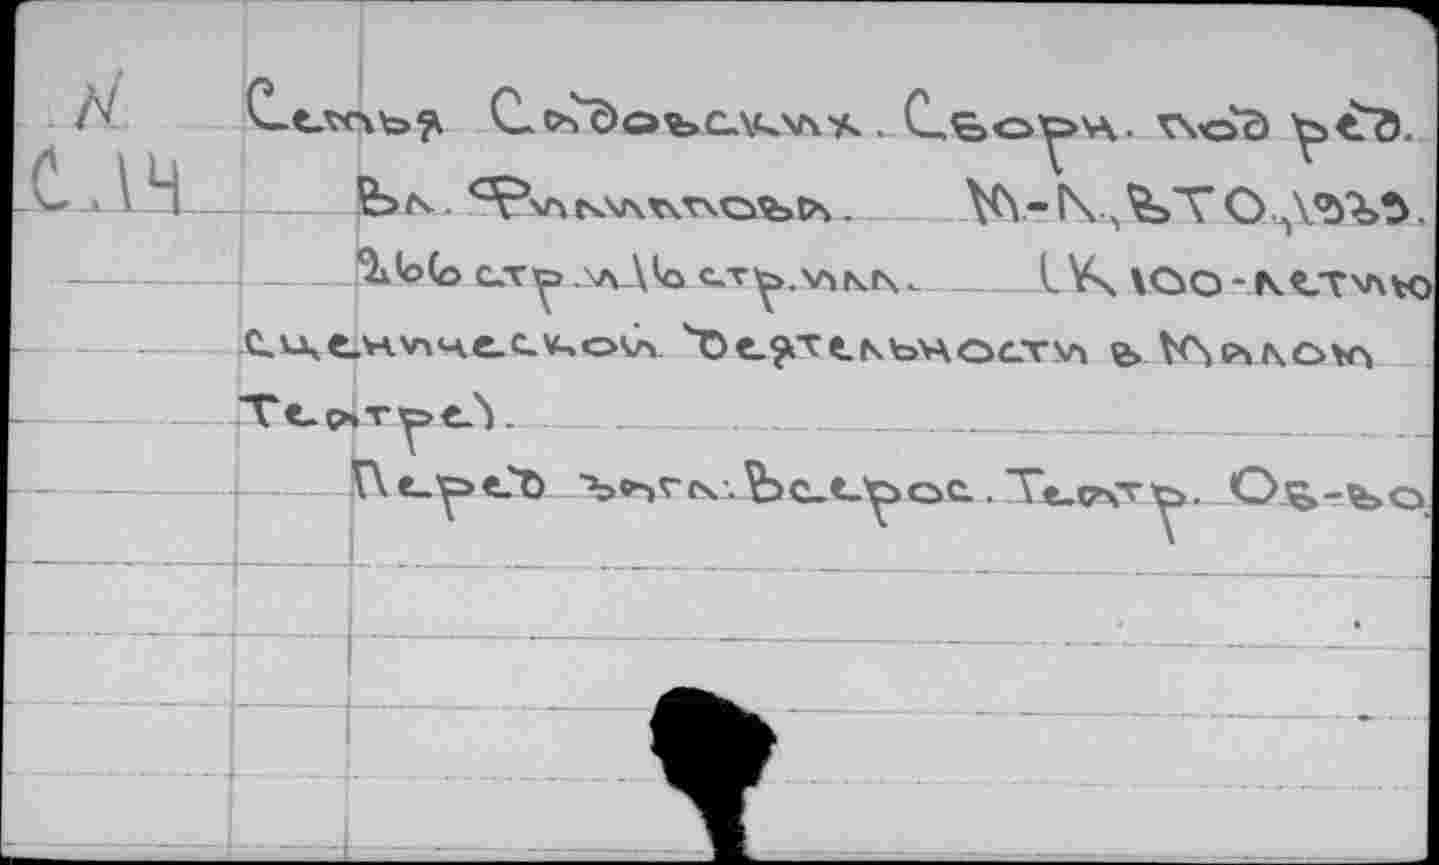 N Семья Садовских. Сборн. под ред.
С.14 Вл. Филиппова. М.-Л., ВТО, 1939.
266 стр. и 16 стр. илл. [К 100-летию
сценической деятельности в Малом
Театре].
Перед загл.: Всерос. Театр. Об-во.